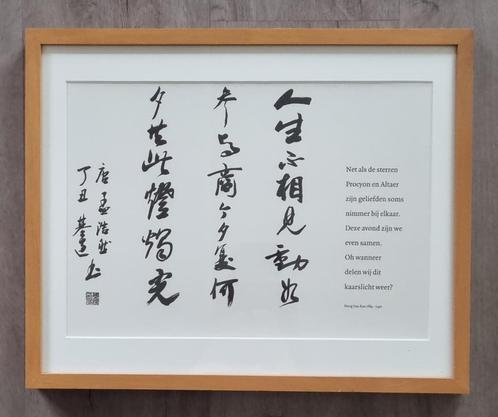 人生不相見動如
参与商今夕復何
夕共此燈燭光
唐孟浩然
丁丑書
Net als de sterren
Procyon en Altaer
zijn geliefden soms
nimmer bij elkaar.
Deze avond zijn we
even samen.
Oh wanneer
delen wij dit
kaarslicht weer?
Meng Hao Ran 689 - 740